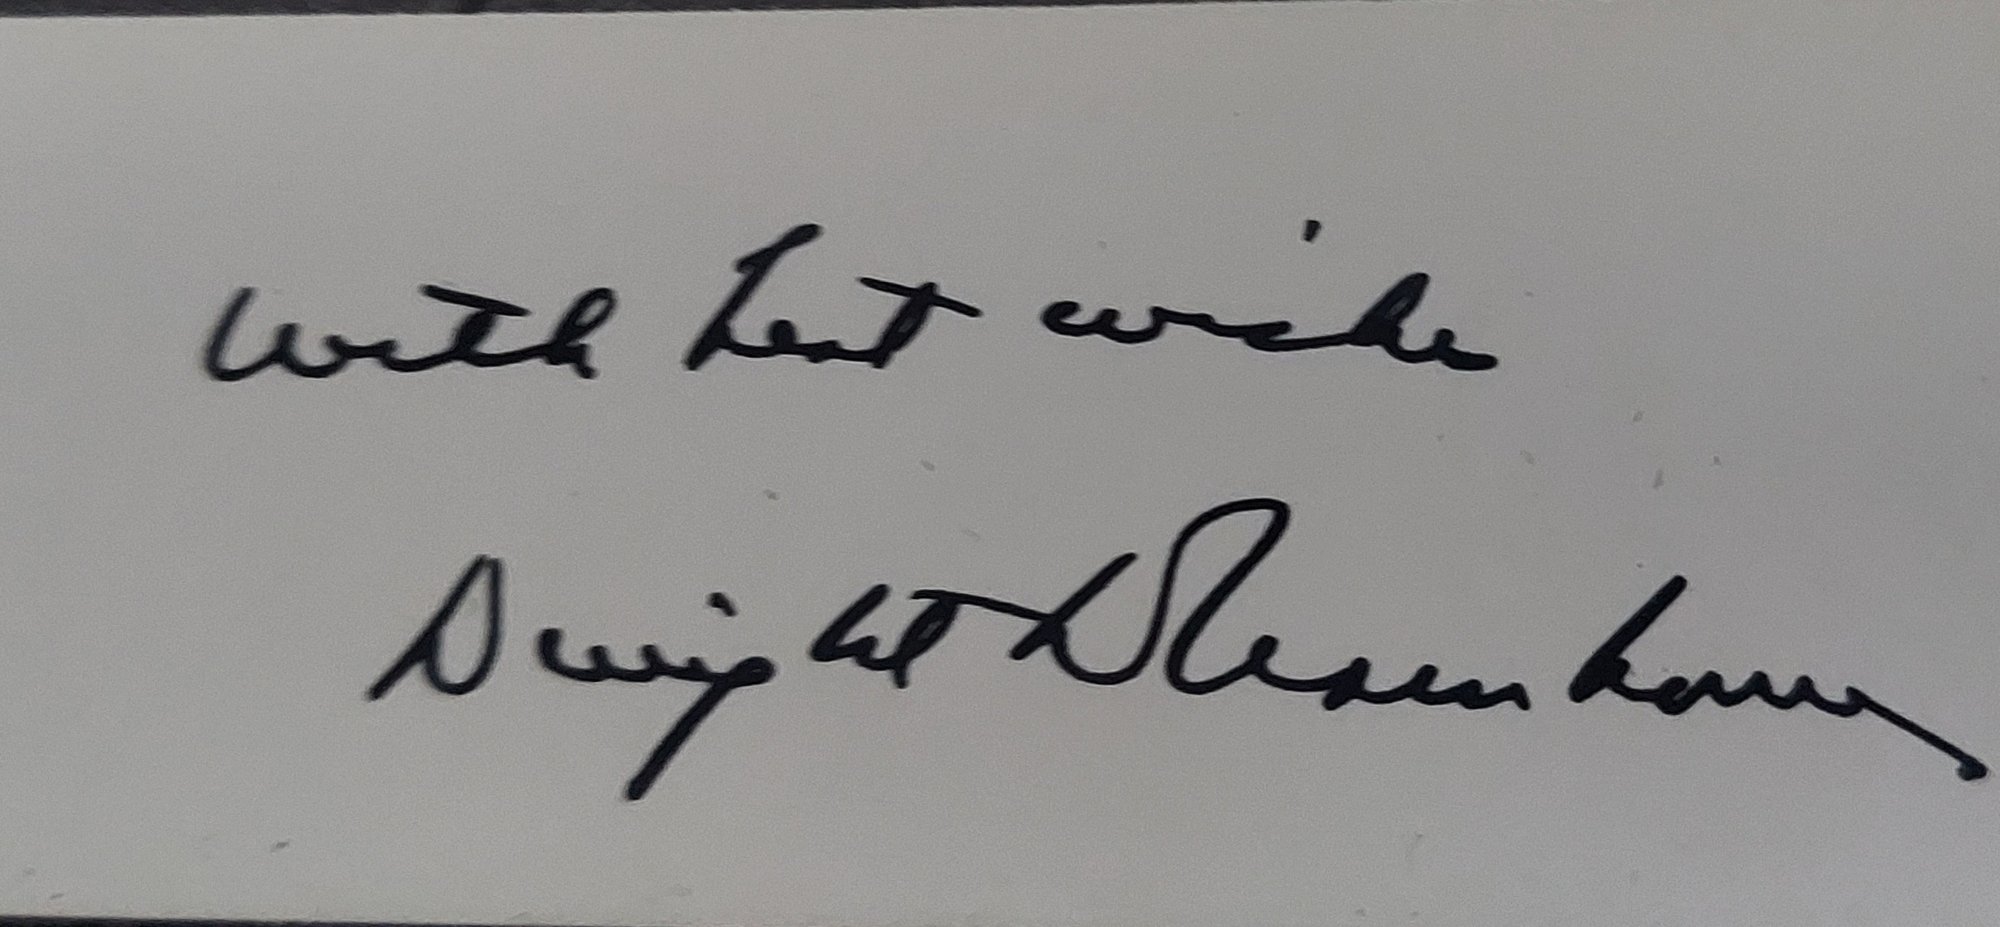 with best wishes
Dwight D Eisenhower